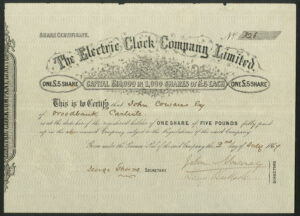 SHARE CERTIFICATE.
No
The Electric Clock Company Limited.
CAPITAL £10,000 IN 2,000 SHARES OF £5 EACH
ONE £5 SHARE
ONE £5 SHARE
This is to Certify that John Cowans Esq
of Woodbank Carlisle
is the registered holder of ONE SHARE of FIVE POUNDS fully paid
up in the above named Company subject to the Regulations of the said Company
Given under the Common Seal of the said Company the 2nd day of July
George
SECRETARY
John
DIRECTORS